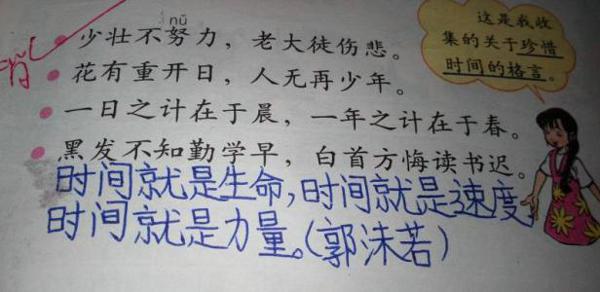 nǔ
少壮不努力，老大徒伤悲。
花有重开日，人无再少年。
一日之计在于晨，一年之计在于春。
黑发不知勤学早，白首方悔读书迟。
这是我收
集的关于珍惜
时间的格言。
时间就是生命,时间就是速度
时间就是力量。(郭沫若)